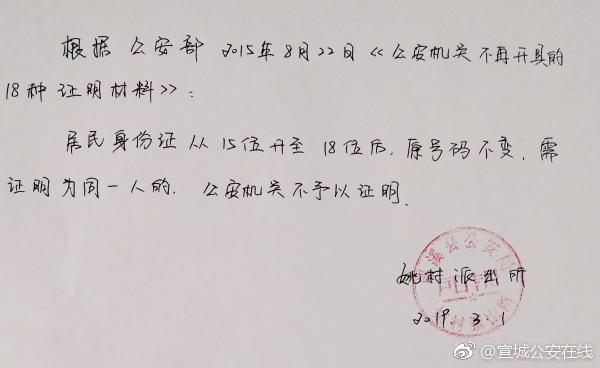 根据公安部2015年8月22日《公安机关不再开具的
18种证明材料》:
居民身份证从15位升至18位后,原号码不变,需
证明为同一人的,公安机关不予以证明.
姚村派出所
2019.3.1
溪县公安局
@宣城公安在线